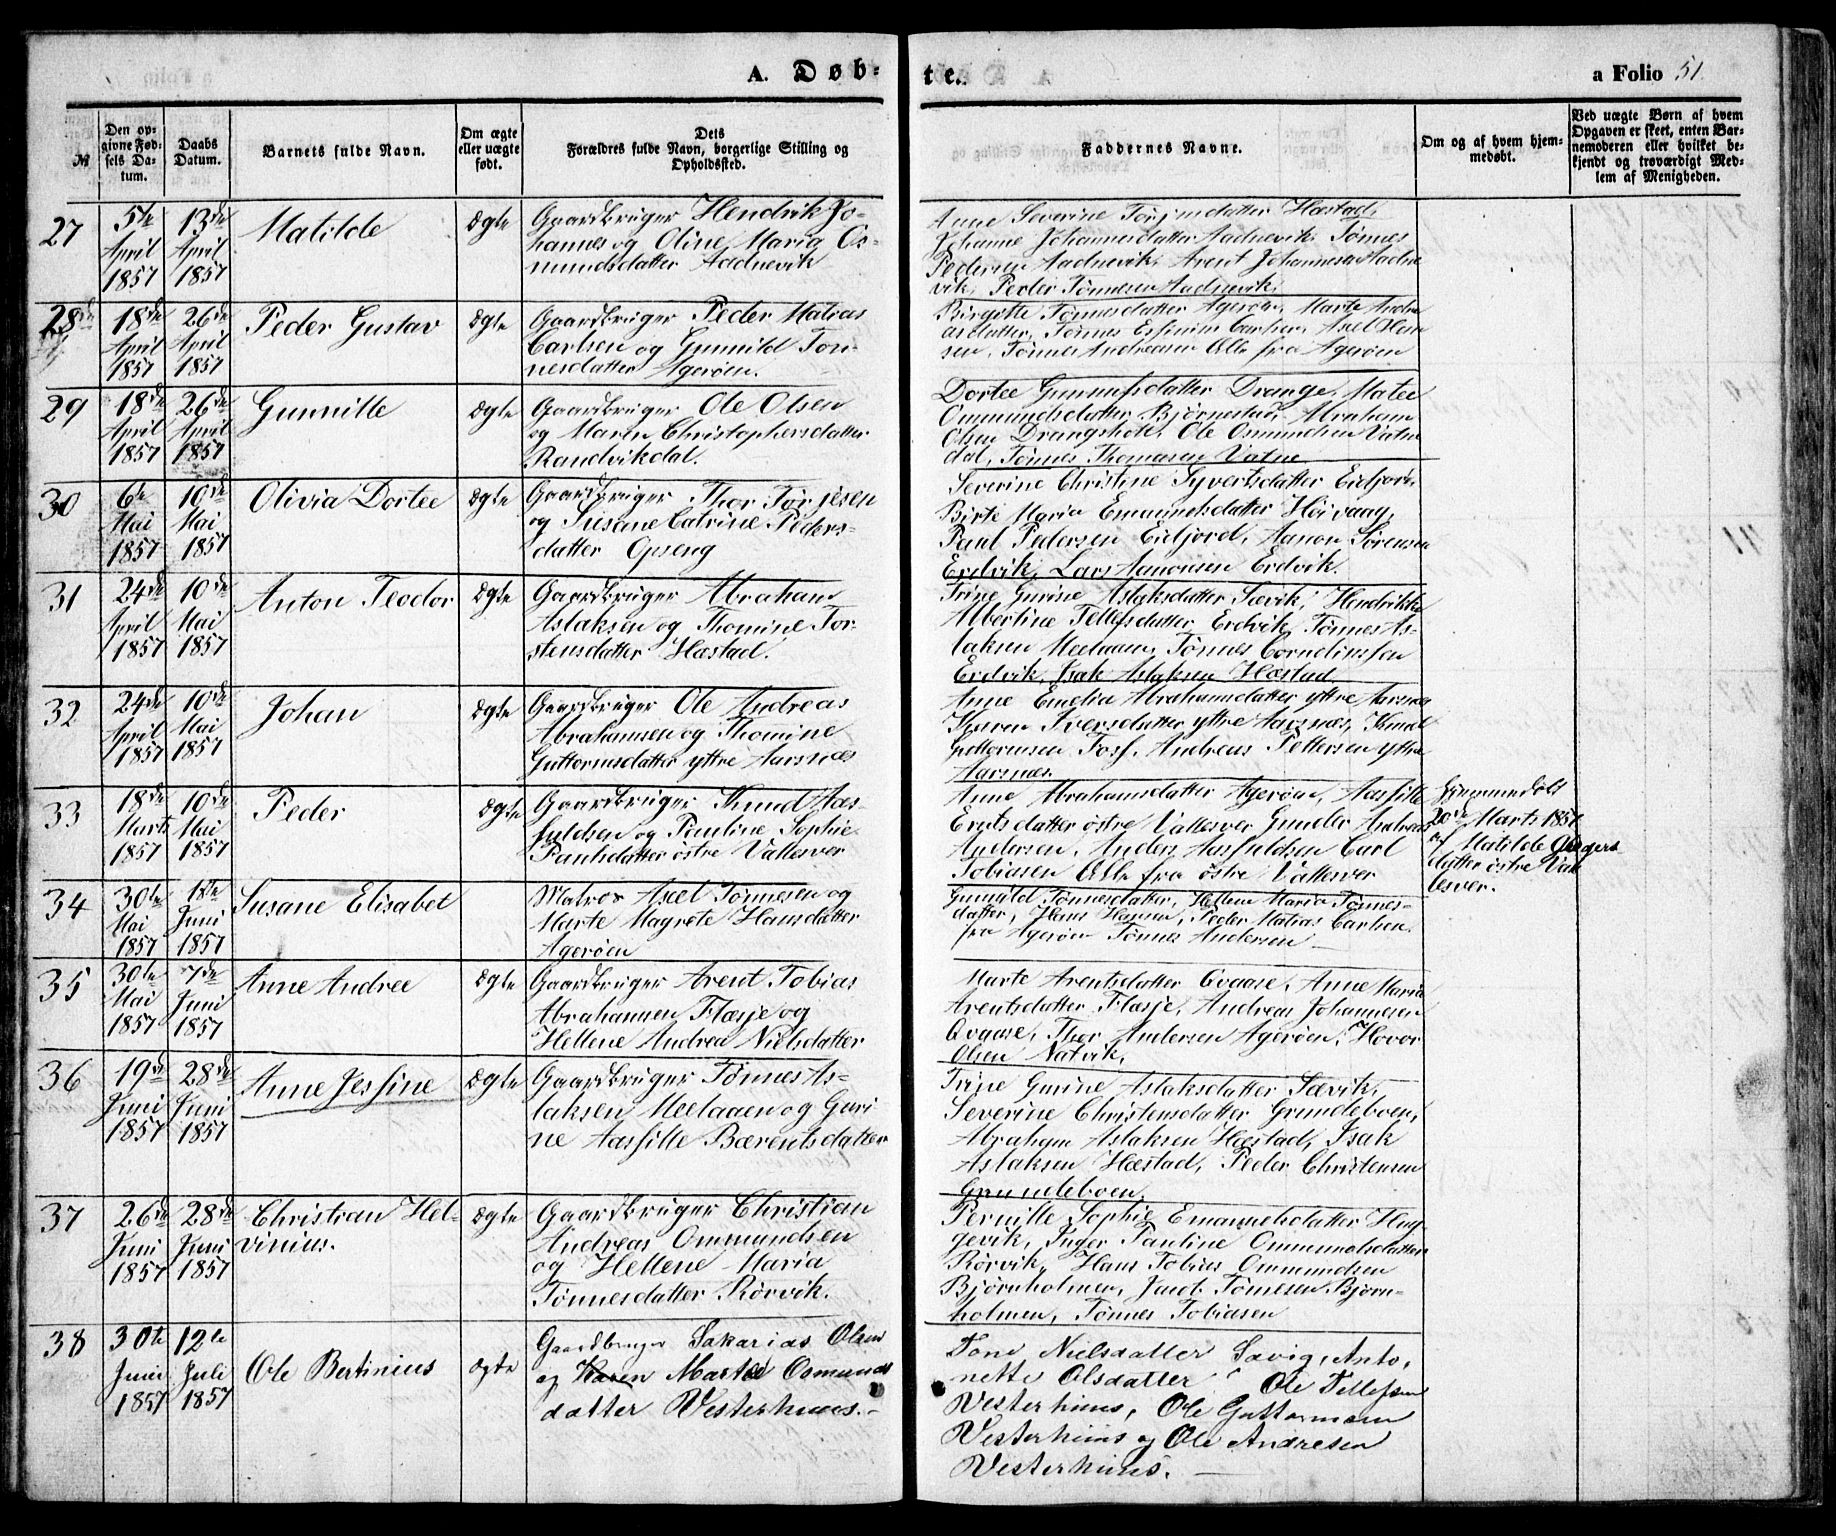 A. Døb- te.
a Folio 51.
№
Den op-
givne Fød-
sels Da-
tum.
Daabs
Datum.
Barnets fulde Navn.
Om ægte
eller uægte
født.
Dets
Forældres fulde Navn, borgerlige Stilling og
Opholdssted.
Faddernes Navne.
Om og af hvem hjem-
medøbt.
Ved uægte Børn af hvem
Opgaven er skeet, enten Bar-
nemoderen eller hvilket be-
kjendt og troværdigt Med-
lem af Menigheden.
27
5te
April
1857
13de
April
1857
Matilde
Ægte
Gaardbruger Hendrik Jo-
hannes og Oline Maria Os-
mundsdatter Aadnevik
Anne Severine Torjusdatter Hæstad,
Johanne Johannesdatter Aadnevik, Tønnes
Pedersen Aadnevik, Arent Johannesen Aadne
vik, Peder Tønnesen Aadnevik.
28de
18de
April
1857
26de
April
1857
Peder Gustav
Ægte
Gaardbruger Peder Matias
Carlsen og Gunnild Tøn-
nesdatter Agerøen.
Birgitte Tønnesdatter Agerøen, Marte Andre
asdatter, Tønnes Carlsen, Axel Han
sen, Tønnes Andreasen Alle fra Agerøen
29
18de
April
1857
26de
April
1857
Gunnille
Ægte
Gaardbruger Ole Olsen
og Maren Christophersdatter
Randvikdal.
Dortee Gunnufsdatter Drange, Matee
Ommundsdatter Bjørnestad, Abraham
Olsen Drangsholt, Ole Osmundsen Vatne
dal, Tønnes Thomasen Vatne
30
6te
Mai
1857
10de
Mai
1857
Olivia Dortee
Ægte
Gaardbruger Thor Torjesen
og Susane Catrine Peders-
datter Opseng
Severine Christine Syvertsdatter Eidjord,
Birte Maria Emanuelsdatter Høivaag,
Paul Pedersen Eidjord, Aanon Sørensen
Erdvik, Lars Aanonsen Erdvik.
31
24de
April
1857
10de
Mai
1857
Anton Teodor
Ægte
Gaardbruger Abraham
Aslaksen og Thomine Tor-
stensdatter Hæstad.
Trine Gurine Aslaksdatter Sævik, Hendrikke
Albertine Tellefsdatter Erdvik, Tønnes As-
laksen Meelaaen, Tønnes Corneliussen
Erdvik, Isak Aslaksen Hæstad
32
24de
April
1857
10de
Mai
1857
Johan
Ægte
Gaardbruger Ole Andreas
Abrahamsen og Thomine
Guttormsdatter yttre Aarsnæs
Anne Emelia Abrahamsdatter yttre Aarsnæs
Karen Iversdatter yttre Aarsnæs, Knud
Guttormsen Fosf, Andreas Pettersen yttre
Aarsnæs.
33
18de
Marts
1857
10de
Mai
1857
Peder
Ægte
Gaardbruger Knud Aas-
fuldsen og Pauline Sophie
Paulsdatter østre Vallesver
Anne Abrahamsdatter Agerøen, Aasfille
Erntsdatter østre Vallesver Gunder Andreas
Andersen, Anders Aasfuldsen Carl
Tobiasen Alle fra østre Vallesver
Hjemmedøbt
20de Marts 1857
af Matilde
datter østre Val
lesver.
34
30te
Mai
1857
1ste
Juni
1857
Susane Elisabet
Matros Axel Tønnesen og
Marte Magrete Hansdatter
Agerøen
Gunnild Tønnesdatter, Hellene Maria Tønnes-
datter, Hans Hansen, Peder Matias Carlsen
fra Agerøen Tønnes Andersen
35
30te
Mai
1857
7de
Juni
1857
Anne Andree
Ægte
Gaardbruger Arent Tobias
Abrahamsen Flasje og
Hellene Andrea Nielsdatter
Marte Arentsdatter Qvaase, Anne Maria
Arentsdatter Flasje, Andreas Johannesen
Qvaase, Thor Andersen Agerøen, Hovor
Olsen Natvik.
36
19de
Juni
1857
28de
Juni
1857
Anne Jesfine
Ægte
Gaardbruger Tønnes As-
laksen Meelaaen og Guri-
ne Aasfille Bærentsdatter
Trine Gurine Aslaksdatter Sævik,
Severine Christensdatter Grundeboen,
Abraham Aslaksen Hæstad, Isak
Aslaksen Hæstad, Peder Christensen
Grundeboen.
37
26de
Juni
1857
28de
Juni
1857
Christian Hel-
vinius.
Ægte
Gaardbruger Christian
Andreas Ommundsen
og Hellene Maria
Tønnesdatter Rørvik.
Pernille Sophie Emanuelsdatter Hug
gevik, Inger Pauline Ommundsdatter
Rørvik, Hans Tobias Ommundsen
Bjørnholmen, Jacob Tønnesen Bjørn-
holmen, Tønnes Tobiasen
38
30te
Juni
1857
12te
Juli
1857
Ole Bertinius
Ægte
Gaardbruger Sakarias Olsen
og Karen Martea Osmunds
datter Vesterhuus.
Tone Nielsdatter Sævig, Anto,
nette Olsdatter Ole Tellefsen
Vesterhuus, Ole Guttormsen
Vesterhuus og Ole Andresen
Vesterhuus.